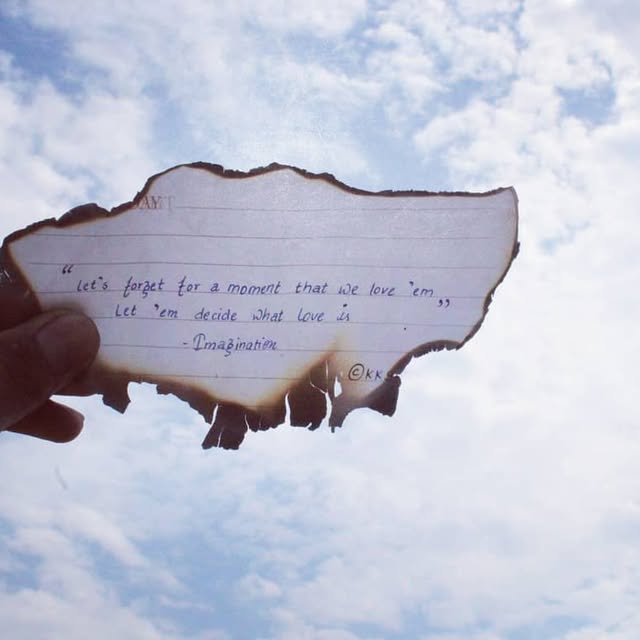 “
Let's forget for a moment that we love 'em
Let 'em decide what love is ”
- Imagination
©KK